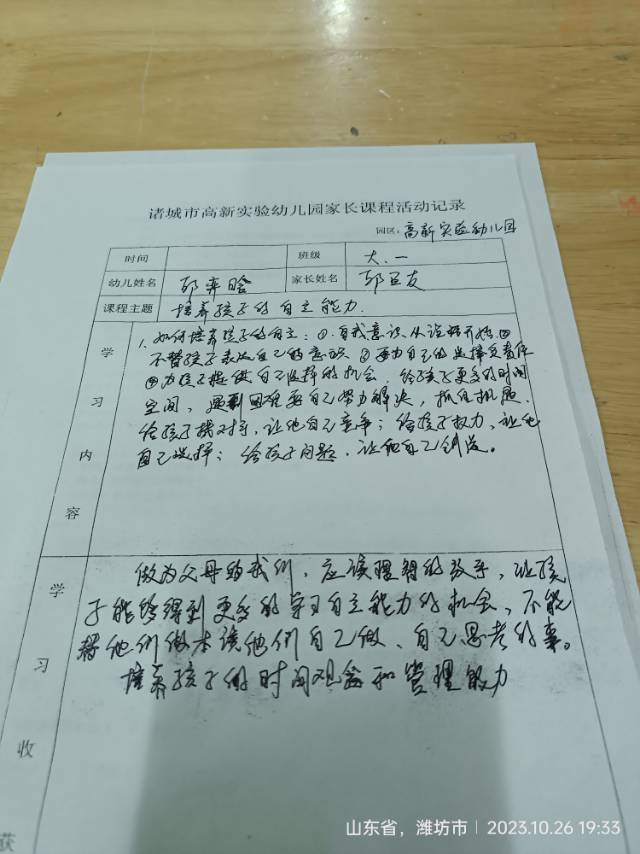 诸城市高新实验幼儿园家长课程活动记录
园区：高新实验幼儿园
时间 班级 大、一
幼儿姓名 家长姓名
课程主题 培养孩子的自主能力
学习内容
1、如何培养孩子的自主：①自我意识，从说话开始，②
不替孩子表达自己的意识 ③要为自己的选择负责任
④为孩子提供自己选择的机会，给孩子更多的时间
空间，遇到困难要自己努力解决，抓住机质、
给孩子找对手，让他自己竞争；给孩子权力、让他
自己选择；给孩子问题，让他自己
学习收获
做为父母的我们，应该理智的放手，让孩
子能够得到更多的学习自主能力的机会，不能
帮他们做本该他们自己做、自己思考的事。
培养孩子的时间观念和管理能力
山东省，潍坊市 2023.10.26 19:33